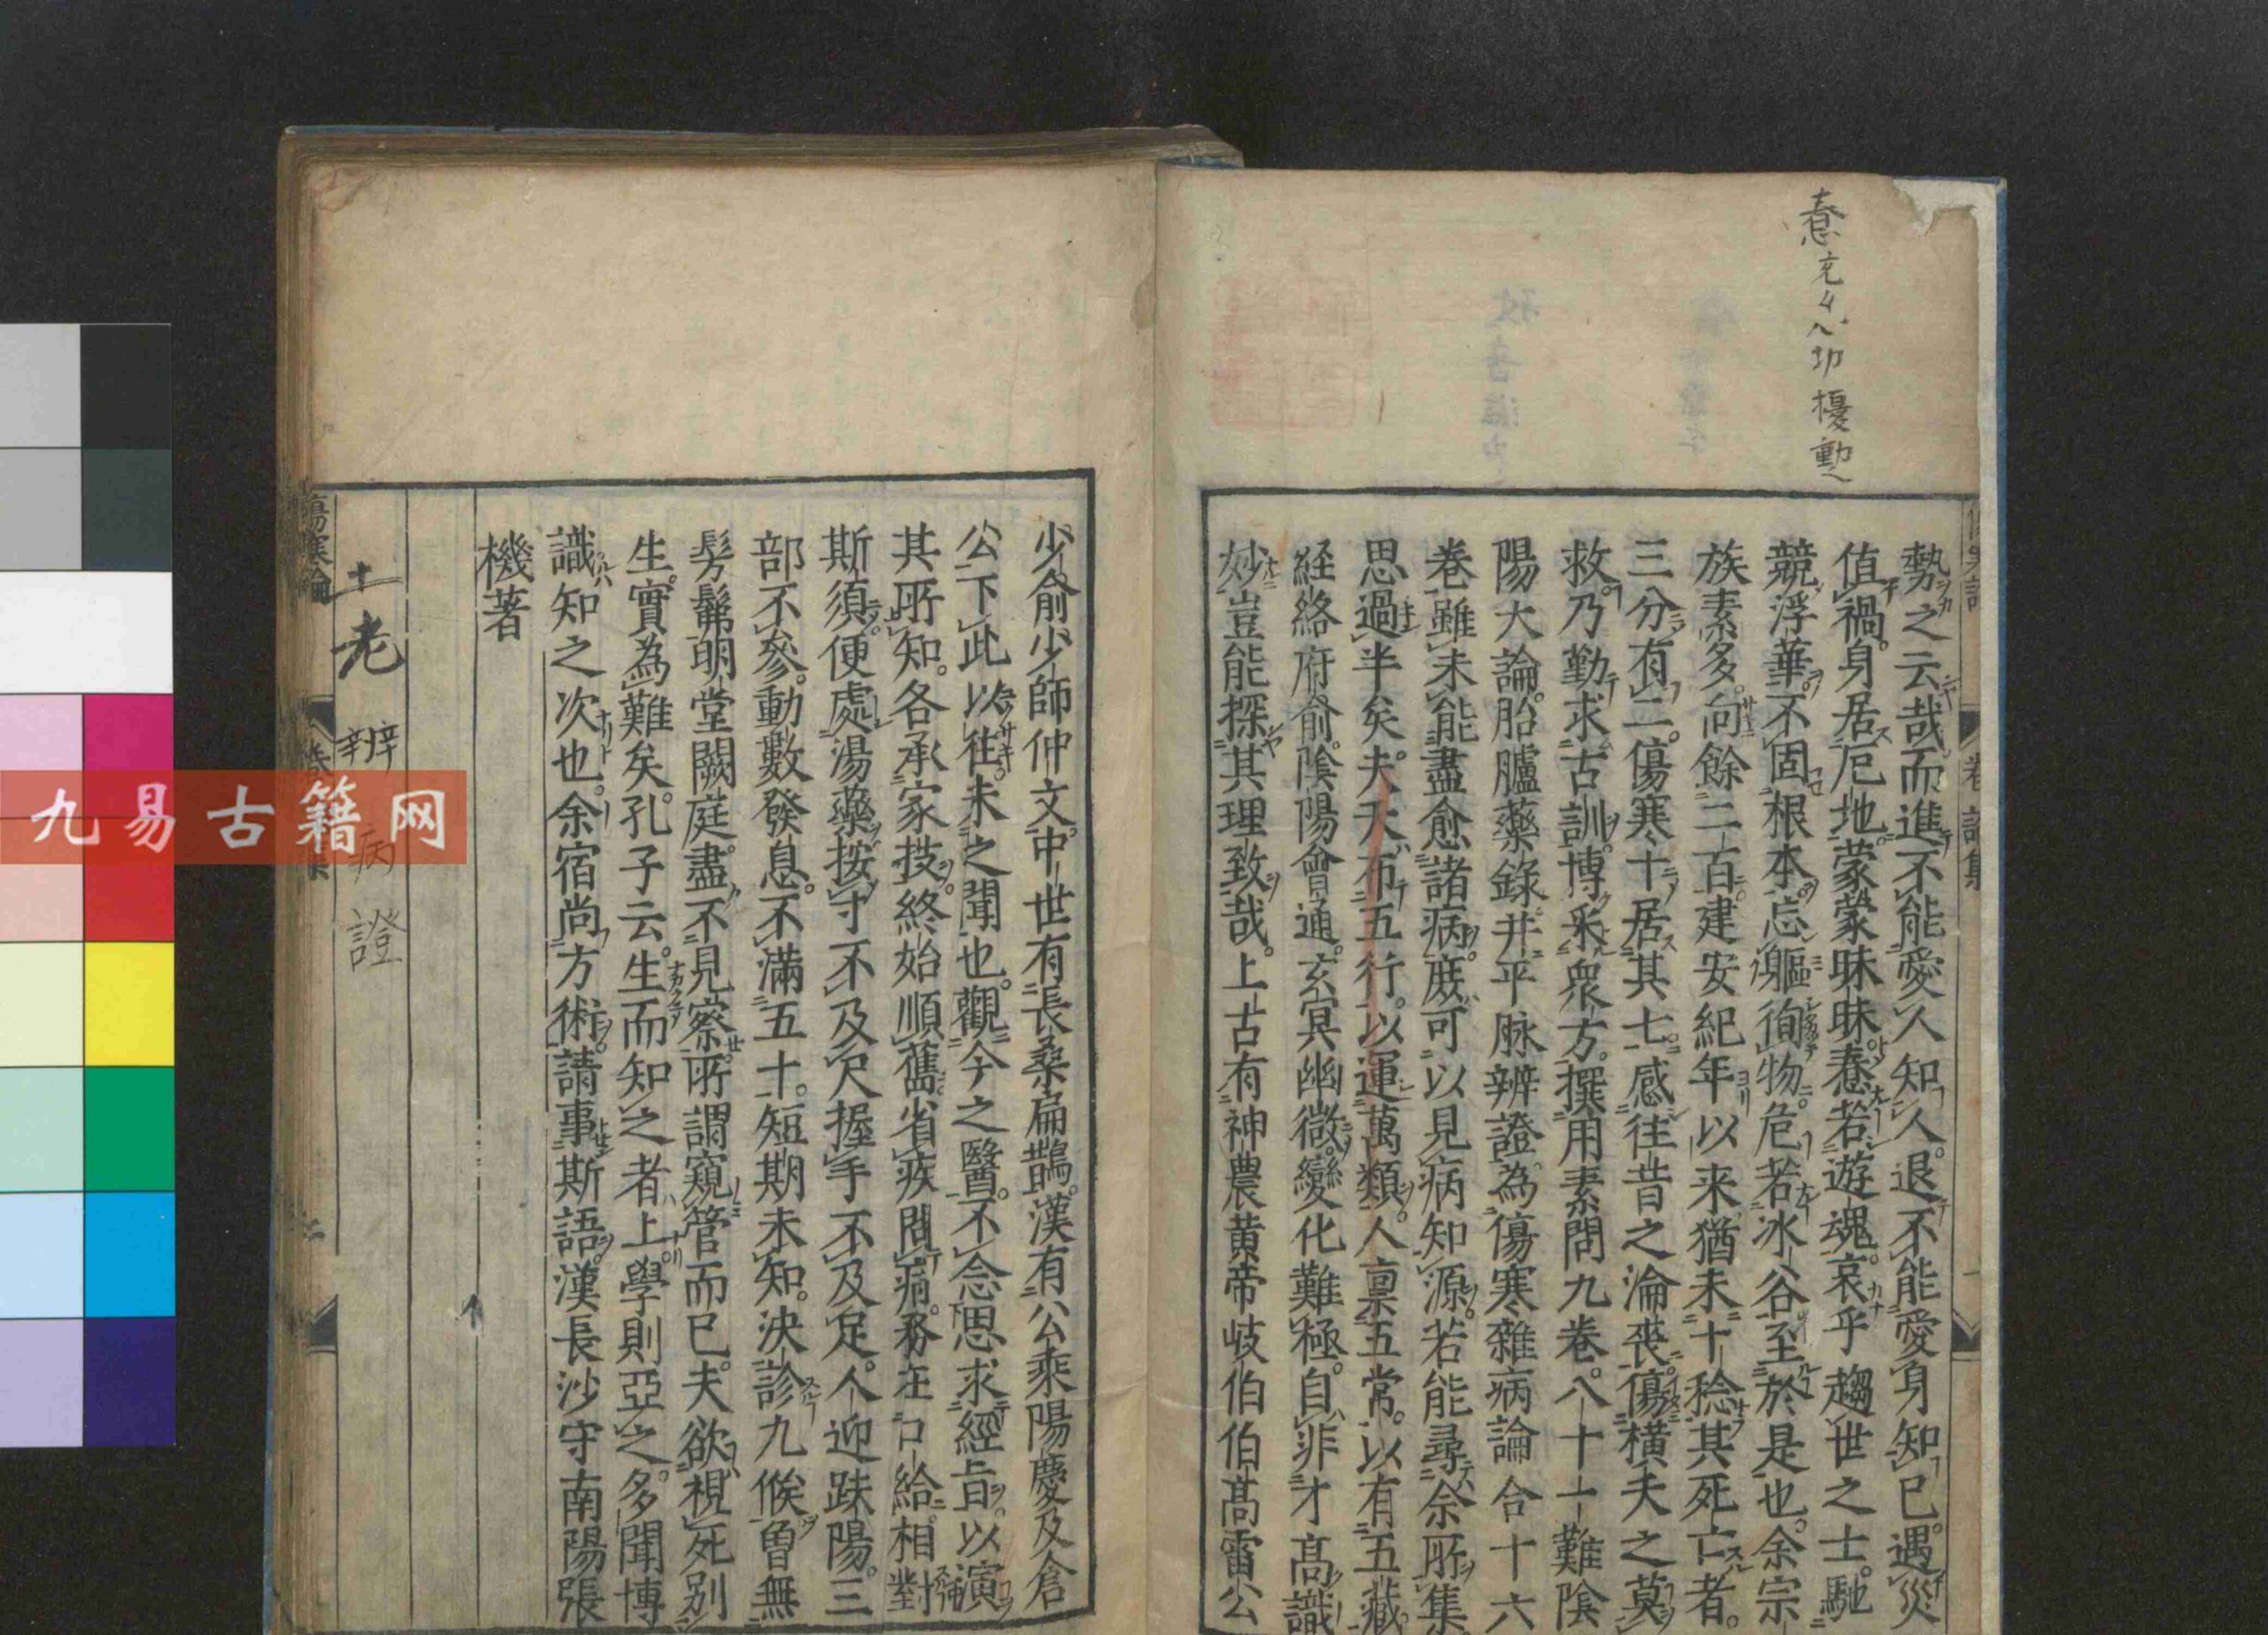 惷
擾動
勢之云哉而進不能愛人知人退不能愛身知己遇災
値禍身居厄地蒙蒙昧昧惷若遊魂哀乎趨世之士馳
競浮華不固根本忘軀徇物危若冰谷至於是也余宗
族素多向餘二百建安紀年以来猶未十稔其死亡者
三分有二傷寒十居其七感往昔之淪喪傷橫夭之莫
救乃勤求古訓博采衆方撰用素問九卷八十一難陰
陽大論胎臚藥錄并平脉辨證為傷寒雜病論合十六
卷雖未能盡愈諸病庶可以見病知源若能尋余所集
思過半矣夫天布五行以運萬類人稟五常以有五藏
経絡府俞陰陽會通玄冥幽微變化難極自非才髙識
妙豈能探其理致哉上古有神農黄帝岐伯伯髙雷公
少俞少師仲文中世有長桑扁鵲漢有公乘陽慶及倉
公下此以往未之聞也觀今之醫不念思求經旨以演
其所知各承家技終始順舊省疾問病務在口給相對
斯須便處湯藥按寸不及尺握手不及足人迎趺陽三
部不參動數發息不滿五十短期未知決診九候曽無
髣髴明堂闕庭盡不見察所謂窺管而已夫欲視死別
生實為難矣孔子云生而知之者上學則亞之多聞博
識知之次也余宿尚方術請事斯語漢長沙守南陽張
機著
傷寒論
老
辨病證
九易古籍网